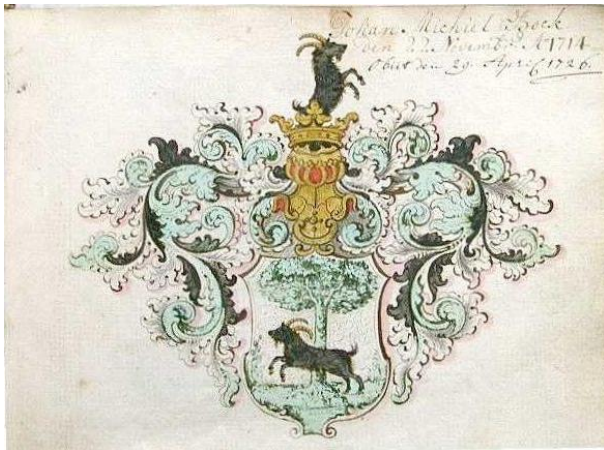 Johan Michiel Bock
den 22 Novembr. A 1714
Obiit den 29. April 1726.